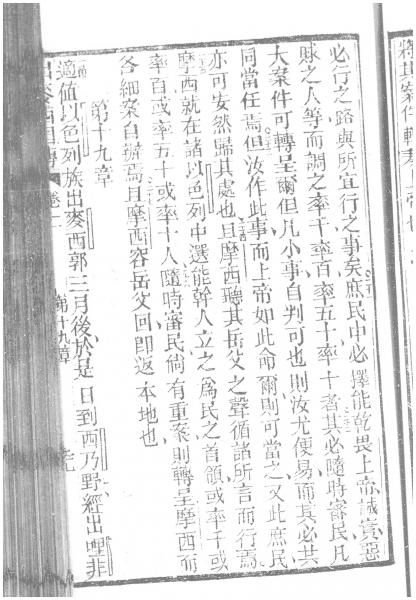 必行之路與所宜行之事矣庶民中必擇能乾畏上帝誠實惡
賕之人等而調之率千率百率五十率十者其必隨時審民凡
大案件可轉呈爾但凡小事自判可也則汝尤便易而其必共
同當任焉但汝作此事而上帝如此命爾則可當之又此庶民
亦可安然歸其處也且摩西聽其岳父之聲循諸所言而行焉
摩西就在諸以色列中選能幹人立之為民之首領或率千或
率百或率五十或率十人隨時審民倘有重案則轉呈摩西而
各細案自辦焉且摩西容岳父回即返本地也
第十九章
適值以色列族出麥西郭三月後於是日到西乃野經出哩非
第十九章